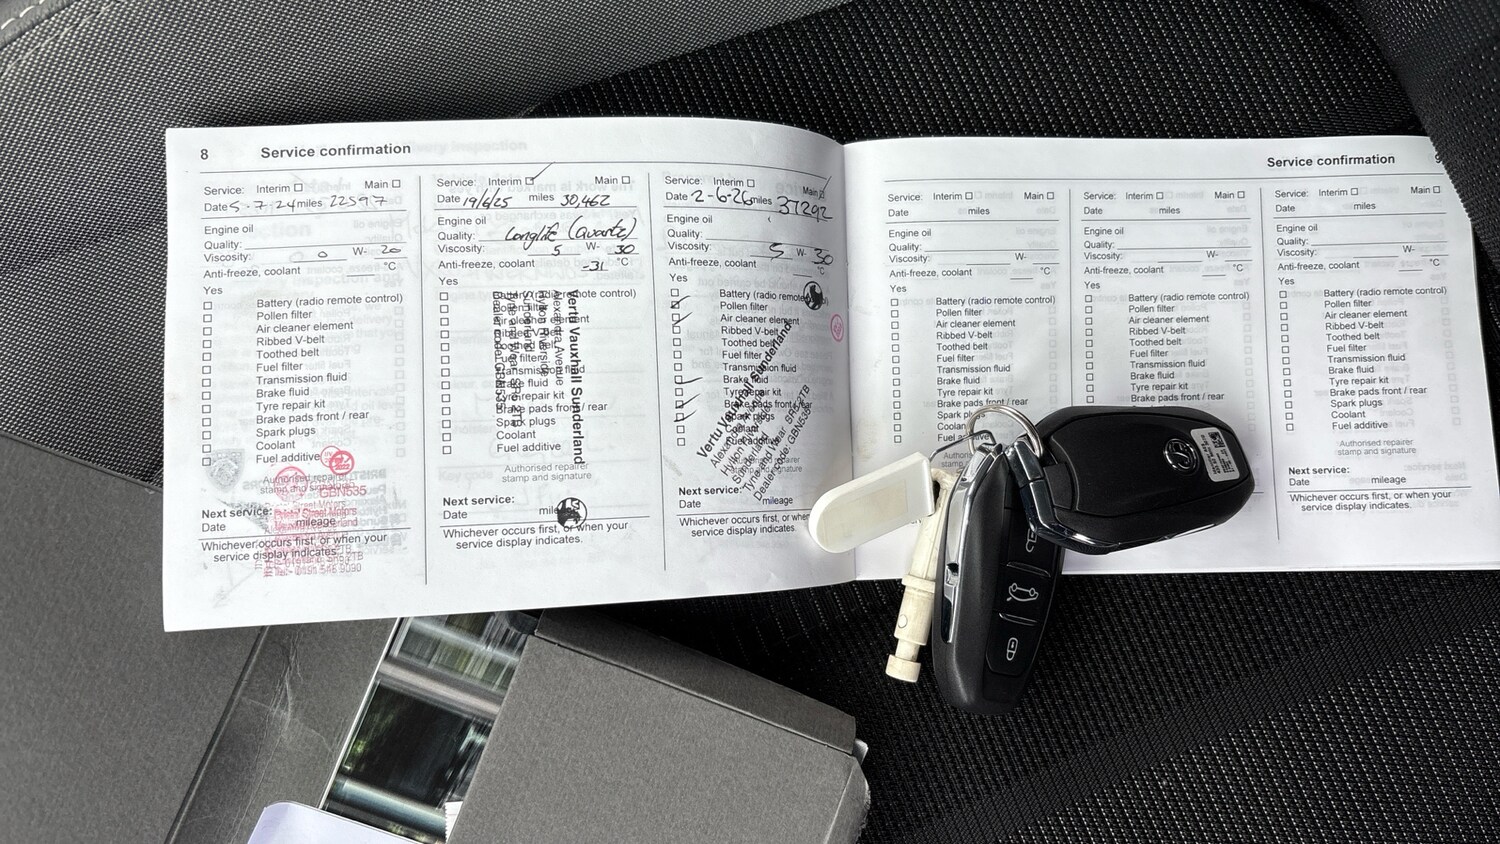 8 Service confirmation
Service: Interim Main
Date 5-7-24 miles 22597
Engine oil
Quality:
Viscosity: 0 W- 20
Anti-freeze, coolant °C
Yes
Battery (radio remote control)
Pollen filter
Air cleaner element
Ribbed V-belt
Toothed belt
Fuel filter
Transmission fluid
Brake fluid
Tyre repair kit
Brake pads front / rear
Spark plugs
Coolant
Fuel additive
Authorised repairer
stamp and signature
GBN535
Next service:
Date mileage
Whichever occurs first, or when your
service display indicates.
Service: Interim Main
Date 19/6/25 miles 30,462
Engine oil
Quality: Longlife (Quartz)
Viscosity: 5 W- 30
Anti-freeze, coolant -31 °C
Yes
Battery (radio remote control)
Air cleaner element
Fuel filter
Transmission fluid
Brake fluid
Tyre repair kit
Brake pads front / rear
Spark plugs
Coolant
Fuel additive
Vertu Vauxhall Sunderland
Alexandra Avenue
Hylton Riverside
Sunderland
Authorised repairer
stamp and signature
Next service:
Date
Whichever occurs first, or when your
service display indicates.
Service: Interim Main
Date 2-6-26 miles 37292
Engine oil
Quality:
Viscosity: 5 W- 30
Anti-freeze, coolant °C
Yes
Battery (radio remote
Pollen filter
Air cleaner element
Ribbed V-belt
Toothed belt
Fuel filter
Transmission fluid
Brake fluid
Tyre repair kit
Brake pads front / rear
Spark plugs
Coolant
Fuel additive
Vertu Vauxhall Sunderland
Tyne and Wear SR5 2TB
Dealer code: GBN535
stamp and signature
Next service:
Date mileage
Whichever occurs first, or when
service display indicates.
Service confirmation
Service: Interim Main
Date miles
Engine oil
Quality:
Viscosity: W-
Anti-freeze, coolant °C
Yes
Battery (radio remote control)
Pollen filter
Air cleaner element
Ribbed V-belt
Toothed belt
Fuel filter
Transmission fluid
Brake fluid
Tyre repair kit
Brake pads front / rear
Spark plugs
Coolant
Service: Interim Main
Date miles
Engine oil
Quality:
Viscosity: W-
Anti-freeze, coolant °C
Yes
Battery (radio remote control)
Pollen filter
Air cleaner element
Ribbed V-belt
Toothed belt
Fuel filter
Transmission fluid
Brake fluid
Tyre repair kit
Brake pads front / rear
Service: Interim Main
Date miles
Engine oil
Quality:
Viscosity: W-
Anti-freeze, coolant °C
Yes
Battery (radio remote control)
Pollen filter
Air cleaner element
Ribbed V-belt
Toothed belt
Fuel filter
Transmission fluid
Brake fluid
Tyre repair kit
Brake pads front / rear
Spark plugs
Coolant
Fuel additive
Authorised repairer
stamp and signature
Next service:
Date mileage
Whichever occurs first, or when your
service display indicates.